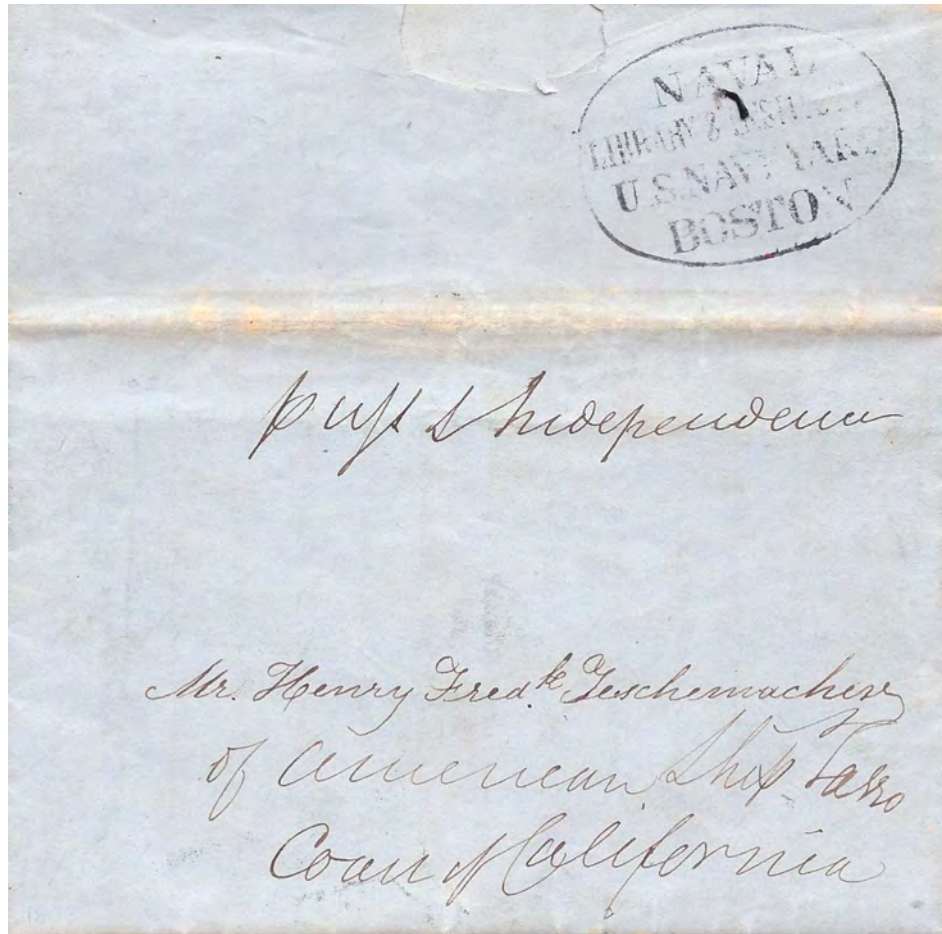 NAVAL
LIBRARY & INSTITUTE
U.S. NAVY YARD
BOSTON
Independence
Mr. Henry Fredk. Teschemacher
of American Ship Tasso
Coast of California